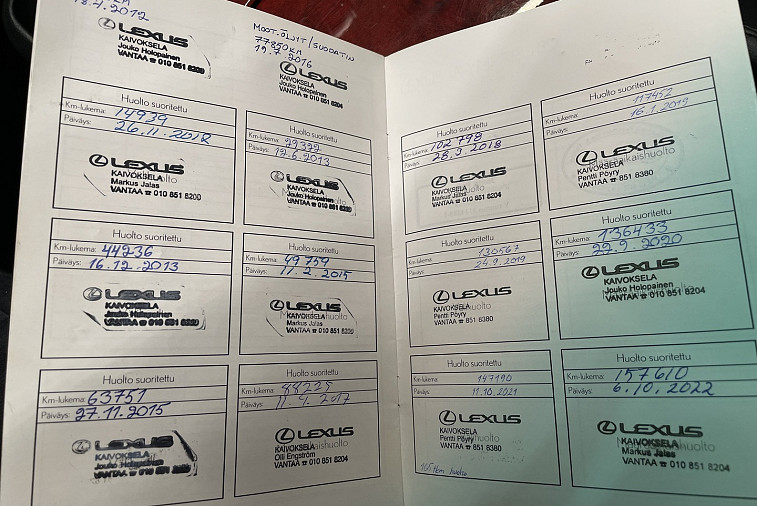 18.4.2012
LEXUS
KAIVOKSELA
Jouko Holopainen
VANTAA ☎ 010 851 8200
MOOT.ÖLJYT/SUODATIN
77250KM
19.7.2016
LEXUS
KAIVOKSELA
Jouko Holopainen
VANTAA ☎ 010 851 8204
Huolto suoritettu
Km-lukema: 14939
Päiväys: 26.11.2012
LEXUS
KAIVOKSELA
Markus Jalas
VANTAA ☎ 010 851 8200
Huolto suoritettu
Km-lukema:
Päiväys: 12.6.2013
LEXUS
KAIVOKSELA
Jouko Holopainen
VANTAA ☎ 010 851 8200
Huolto suoritettu
Km-lukema: 44236
Päiväys: 16.12.2013
LEXUS
KAIVOKSELA
Jouko Holopainen
VANTAA ☎ 010 851 8200
Huolto suoritettu
Km-lukema: 49759
Päiväys: 11.2.2015
LEXUS
KAIVOKSELA
Markus Jalas
VANTAA ☎ 010 851 8200
Huolto suoritettu
Km-lukema: 63751
Päiväys: 27.11.2015
LEXUS
KAIVOKSELA
Jouko Holopainen
VANTAA ☎ 010 851 8200
Huolto suoritettu
Km-lukema: 88225
Päiväys: 11.4.2017
LEXUS
KAIVOKSELA
Olli Engström
VANTAA ☎ 010 851 8204
Huolto suoritettu
Km-lukema: 102798
Päiväys: 28.3.2018
LEXUS
KAIVOKSELA
Markus Jalas
VANTAA ☎ 010 851 8204
Huolto suoritettu
Km-lukema: 117452
Päiväys: 16.1.2019
LEXUS
KAIVOKSELA
Pentti Pöyry
VANTAA ☎ 851 8380
Huolto suoritettu
Km-lukema: 130567
Päiväys: 24.9.2019
LEXUS
KAIVOKSELA
Pentti Pöyry
VANTAA ☎ 851 8380
Huolto suoritettu
Km-lukema: 136433
Päiväys: 22.9.2020
LEXUS
KAIVOKSELA
Jouko Holopainen
VANTAA ☎ 010 851 8204
Huolto suoritettu
Km-lukema: 147190
Päiväys: 11.10.2021
LEXUS
KAIVOKSELA
Pentti Pöyry
VANTAA ☎ 010 851 8380
huolto
Huolto suoritettu
Km-lukema: 157610
Päiväys: 6.10.2022
LEXUS
KAIVOKSELA
Markus Jalas
VANTAA ☎ 010 851 8204